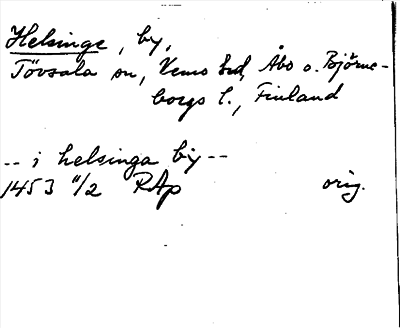 Helsinge, by,
Tövsala sn, Vemo hd, Åbo o. Björne-
borgs l., Finland
-- i helsinga by --
1453 11/2 RAp orig.